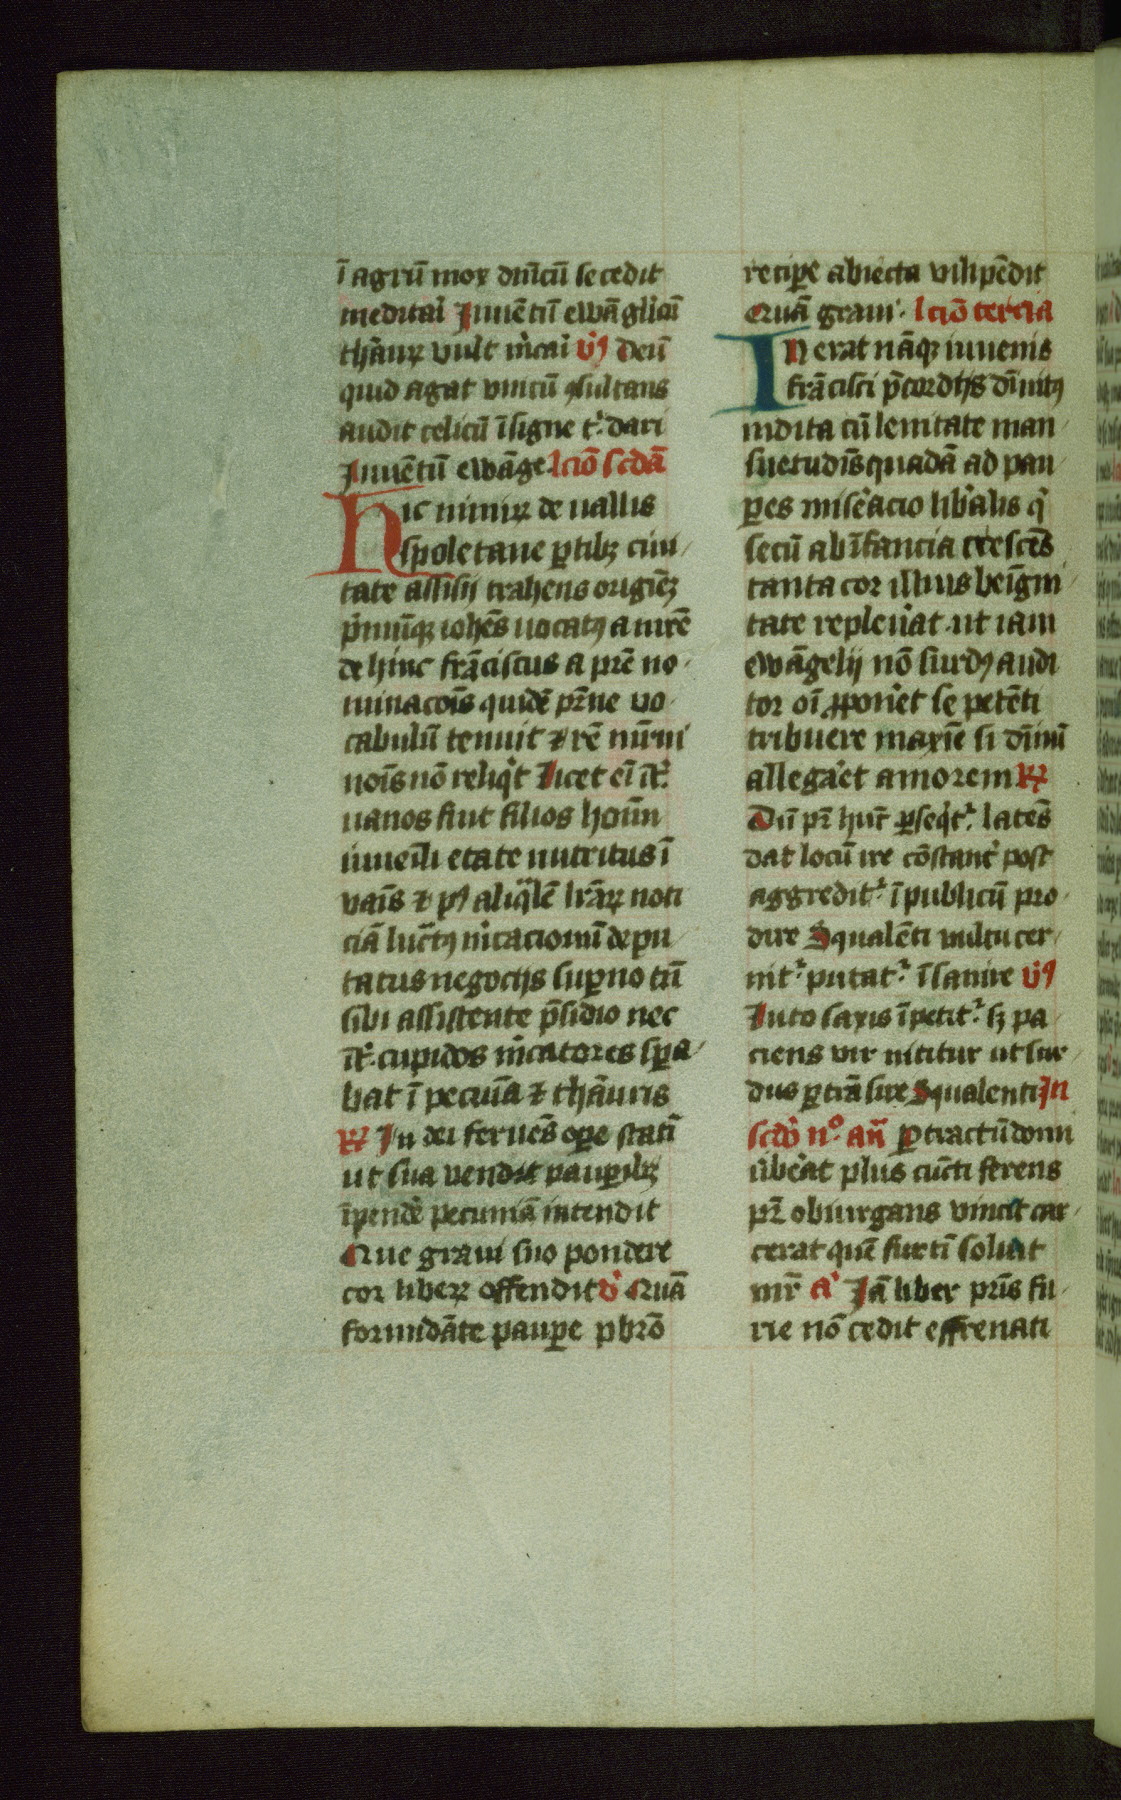 ī agrū mox dnīcū secedit
meditai Inuētū ewāglicū
thāurꝝ vult m̄cai v̓ꝰ Deū
quid agat vnicū ꝯsultans
audit celicū īsigne t͛ dari
Inuētū ewāge lcıō scdā
Hic nimirꝝ de uallis
spoletane ꝑtibꝫ ciui
tate assisij trahens origiēꝫ
p̓mūqꝫ iohēs uocatꝰ a mr̄e
de hinc frāciscus a pr̄e no
minacōis quidē pr̄ne vo
cabulū tenuit ⁊ rē nūmi
noīs nō reliq̓t Licet eī īt͛
uanos fiut filios hoīm
iuueīli etate nutritus ī
vaīs ⁊ pꝰ aliq̄lē lr̄arꝝ noti
ciā luc̄tꝰ m̓cacionū depu
tatus negocijs suꝑno tn̄
sibi assistente p̄sidio nec
īt͛ cupidos m̓catores sꝑa
bat ī pecuīa ⁊ thāuris
℟ In dei feruēs oꝑe statī
ut sua vendit pauꝑibꝫ
īpendē pecuniā intendit
Que graui suo pondere
cor liberꝝ offendit v̓ Quā
formidāte pauꝑe pbrō
reciꝑe abiecta vilipēdit
Quā graui lcıō tercia
In erat nāqꝫ iuuenis
frācisci p̄cordijs dīnitꝰ
indita cū lenitate man
suetudīs quadā ad pau
ꝑes mise̓acio lib̓alis q̄
secū ab īfancia crescēs
tanta cor illius beīgni
tate repleu̓at ut iam
ewāgelij nō surdꝰ audi
tor oī ꝓponet̓ se petēti
tribuere maxīe si dīnū
allega̓et amorem ℟
Dū pr̄ hūc ꝑseq̓t͛ latēs
dat locū ire cōstant̓ post
aggredit͛ ī publicū pro
dire Squalēti vultu cer
nit͛ putat͛ īsanire v̓ꝰ
Luto saxis īpetit͛ sꝫ pa
ciens vir nititur ut sur
dus ꝑtrāsire Squalenti In
scdo̓ n° an̄ ꝑtractū domi
u̓be̓at plus cūcti ferens
pr̄ obiurgans vincit car
cerat quē furtī soluit
mr̄ a̓ Iā liber pr̄is fu
rie nō cedit effrenati